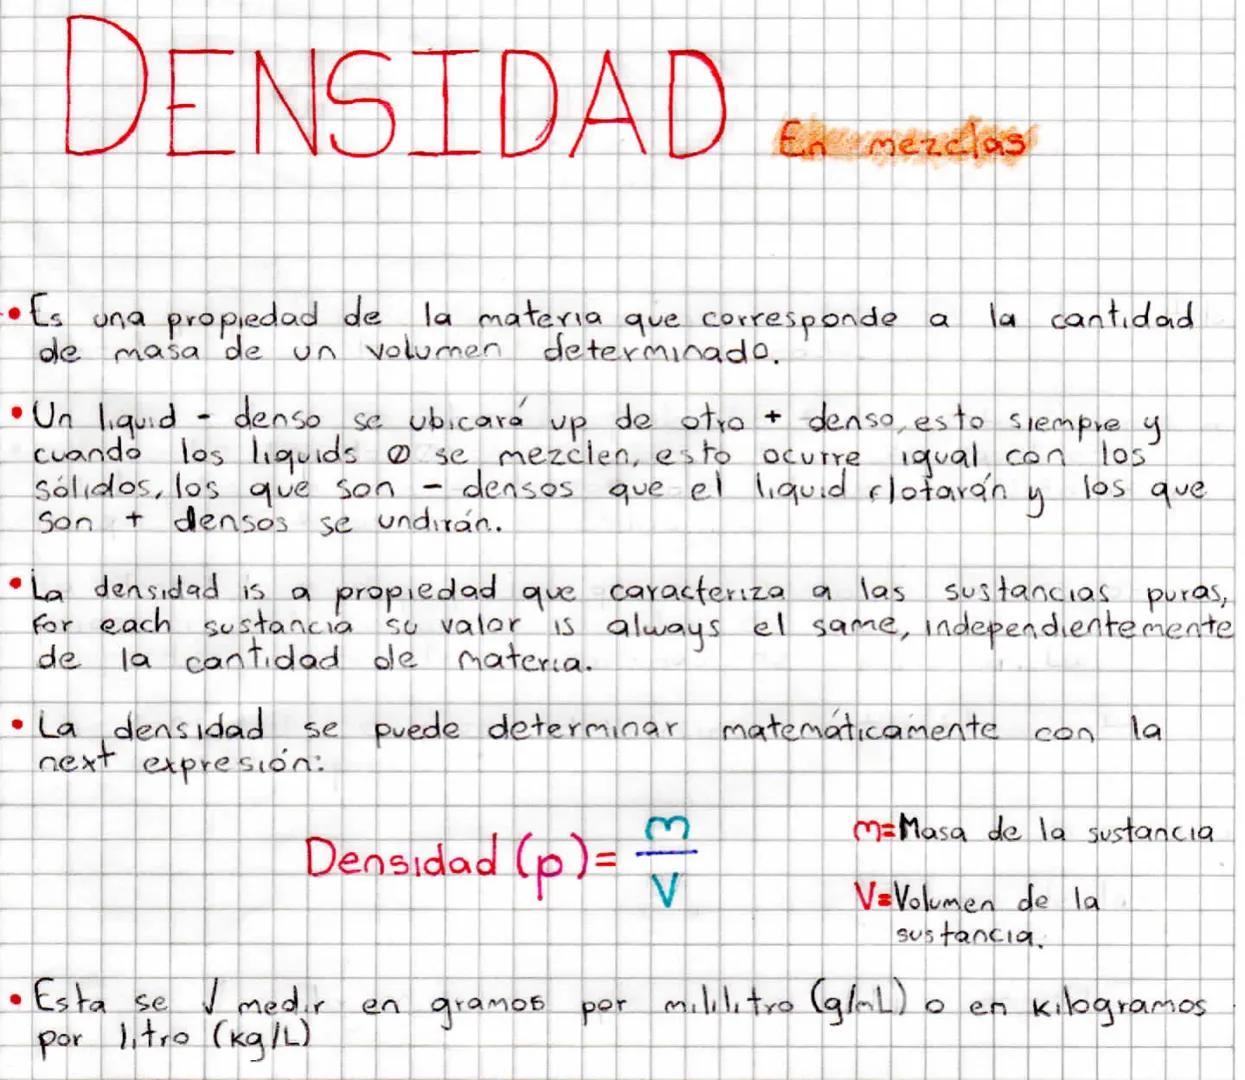 DENSIDAD En mezclas
• Es una propiedad de la materia que corresponde a la cantidad
de masa de un volumen determinado.
• Un liquid - denso se ubicará up de otro + denso, esto siempre y
cuando los liquids Ø se mezclen, esto ocurre igual con los
sólidos, los que son - densos que el liquid flotarán y los que
son + densos se undirán.
• La densidad is a propiedad que caracteriza a las sustancias puras,
For each sustancia su valor is always el same, independientemente
de la cantidad de materia.
• La densidad se puede determinar matemáticamente con la
next expresión:
Densidad (p) = m
V
m=Masa de la sustancia
V=Volumen de la
sustancia.
• Esta se √ medir en gramos por mililitro (g/mL) o en kilogramos
por litro (kg/L)